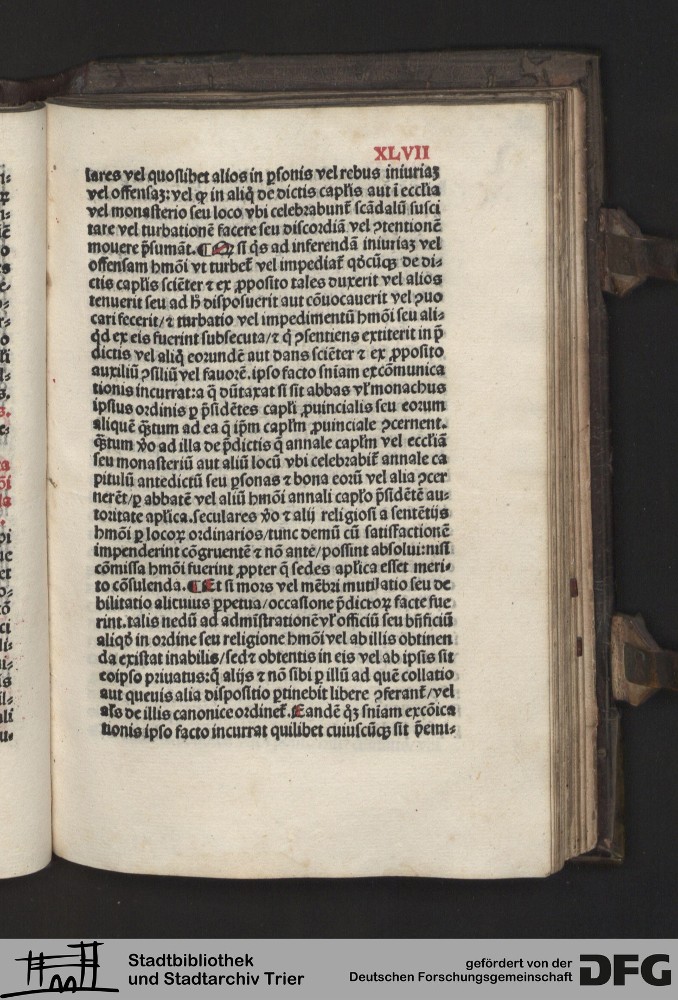 XLVII
lares vel quoslibet alios in ꝑsonis vel rebus iniuriaꝫ
vel offensaꝫ: vel ꝙ in aliq̄ de dictis caplīs aut ī ecclīa
vel monasterio seu loco vbi celebrabunt᷑ scādalū susci
tare vel turbationē facere seu discordiā vel ꝯtentionē
mouere p̄sumāt. ¶ Qꝛ si q̄s ad inferendā iniuriaꝫ vel
offensam hmōi vt turbet᷑ vel impediat᷑ qd̓cūqꝫ de di-
ctis caplīs sciēter ⁊ ex ꝓposito tales duxerit vel alios
tenuerit seu ad h̓ disposuerit aut cōuocauerit vel ꝯuo
cari fecerit/ ⁊ turbatio vel impedimentū hmōi seu ali-
qd̓ ex eis fuerint subsecuta/ ⁊ q̄ ꝯsentiens extiterit in p̄
dictis vel aliq̄ eorundē aut dans sciēter ⁊ ex ꝓposito
auxiliū ꝯsiliū vel fauorē. ipso facto sniam excōmunica
tionis incurrat: a q̄ dūtaxat si sit abbas vl̓ monachus
ipsius ordinis ꝑ p̄sidētes capli ꝓuincialis seu eorum
aliquē qꝫtum ad ea q̄ ip̄m caplm̄ ꝓuinciale ꝯcernent.
qꝫtum v̓o ad illa de p̄dictis q̄ annale caplm̄ vel ecclīā
seu monasteriū aut aliū locū vbi celebrabit᷑ annale ca
pitulū antedictū seu ꝑsonas ⁊ bona eorū vel alia ꝯcer
nerēt/ ꝑ abbatē vel aliū hmōi annali caplo p̄sidētē au-
toritate aplica. seculares v̓o ⁊ alij religiosi a sentētijs
hmōi ꝑ locoꝝ ordinarios/ tunc demū cū satisfactionē
impenderint cōgruentē ⁊ nō ante/ possint absolui: nisi
cōmissa hmōi fuerint ꝓpter q̄ sedes aplica esset meri-
to cōsulenda. ¶ Et si mors vel mēbri mutilatio seu de
bilitatio alicuius ꝑpetua/ occasione p̄dictoꝝ facte fue
rint. talis nedū ad admīstrationē vl̓ officiū seu bn̄ficiū
aliqd̓ in ordine seu religione hmōi vel ab illis obtinen
da existat inabilis/ sed ⁊ obtentis in eis vel ab ipsis sit
eoipso priuatus: q̄ alijs ⁊ nō sibi ꝑ illū ad quē collatio
aut queuis alia dispositio ꝑtinebit libere ꝯferant᷑/ vel
als̄ de illis canonice ordinet᷑. Eandē qꝫ sniam excōica
tionis ipso facto incurrat quilibet cuiuscūqꝫ sit p̄emi-
Stadtbibliothek
und Stadtarchiv Trier
gefördert von der
Deutschen Forschungsgemeinschaft
DFG